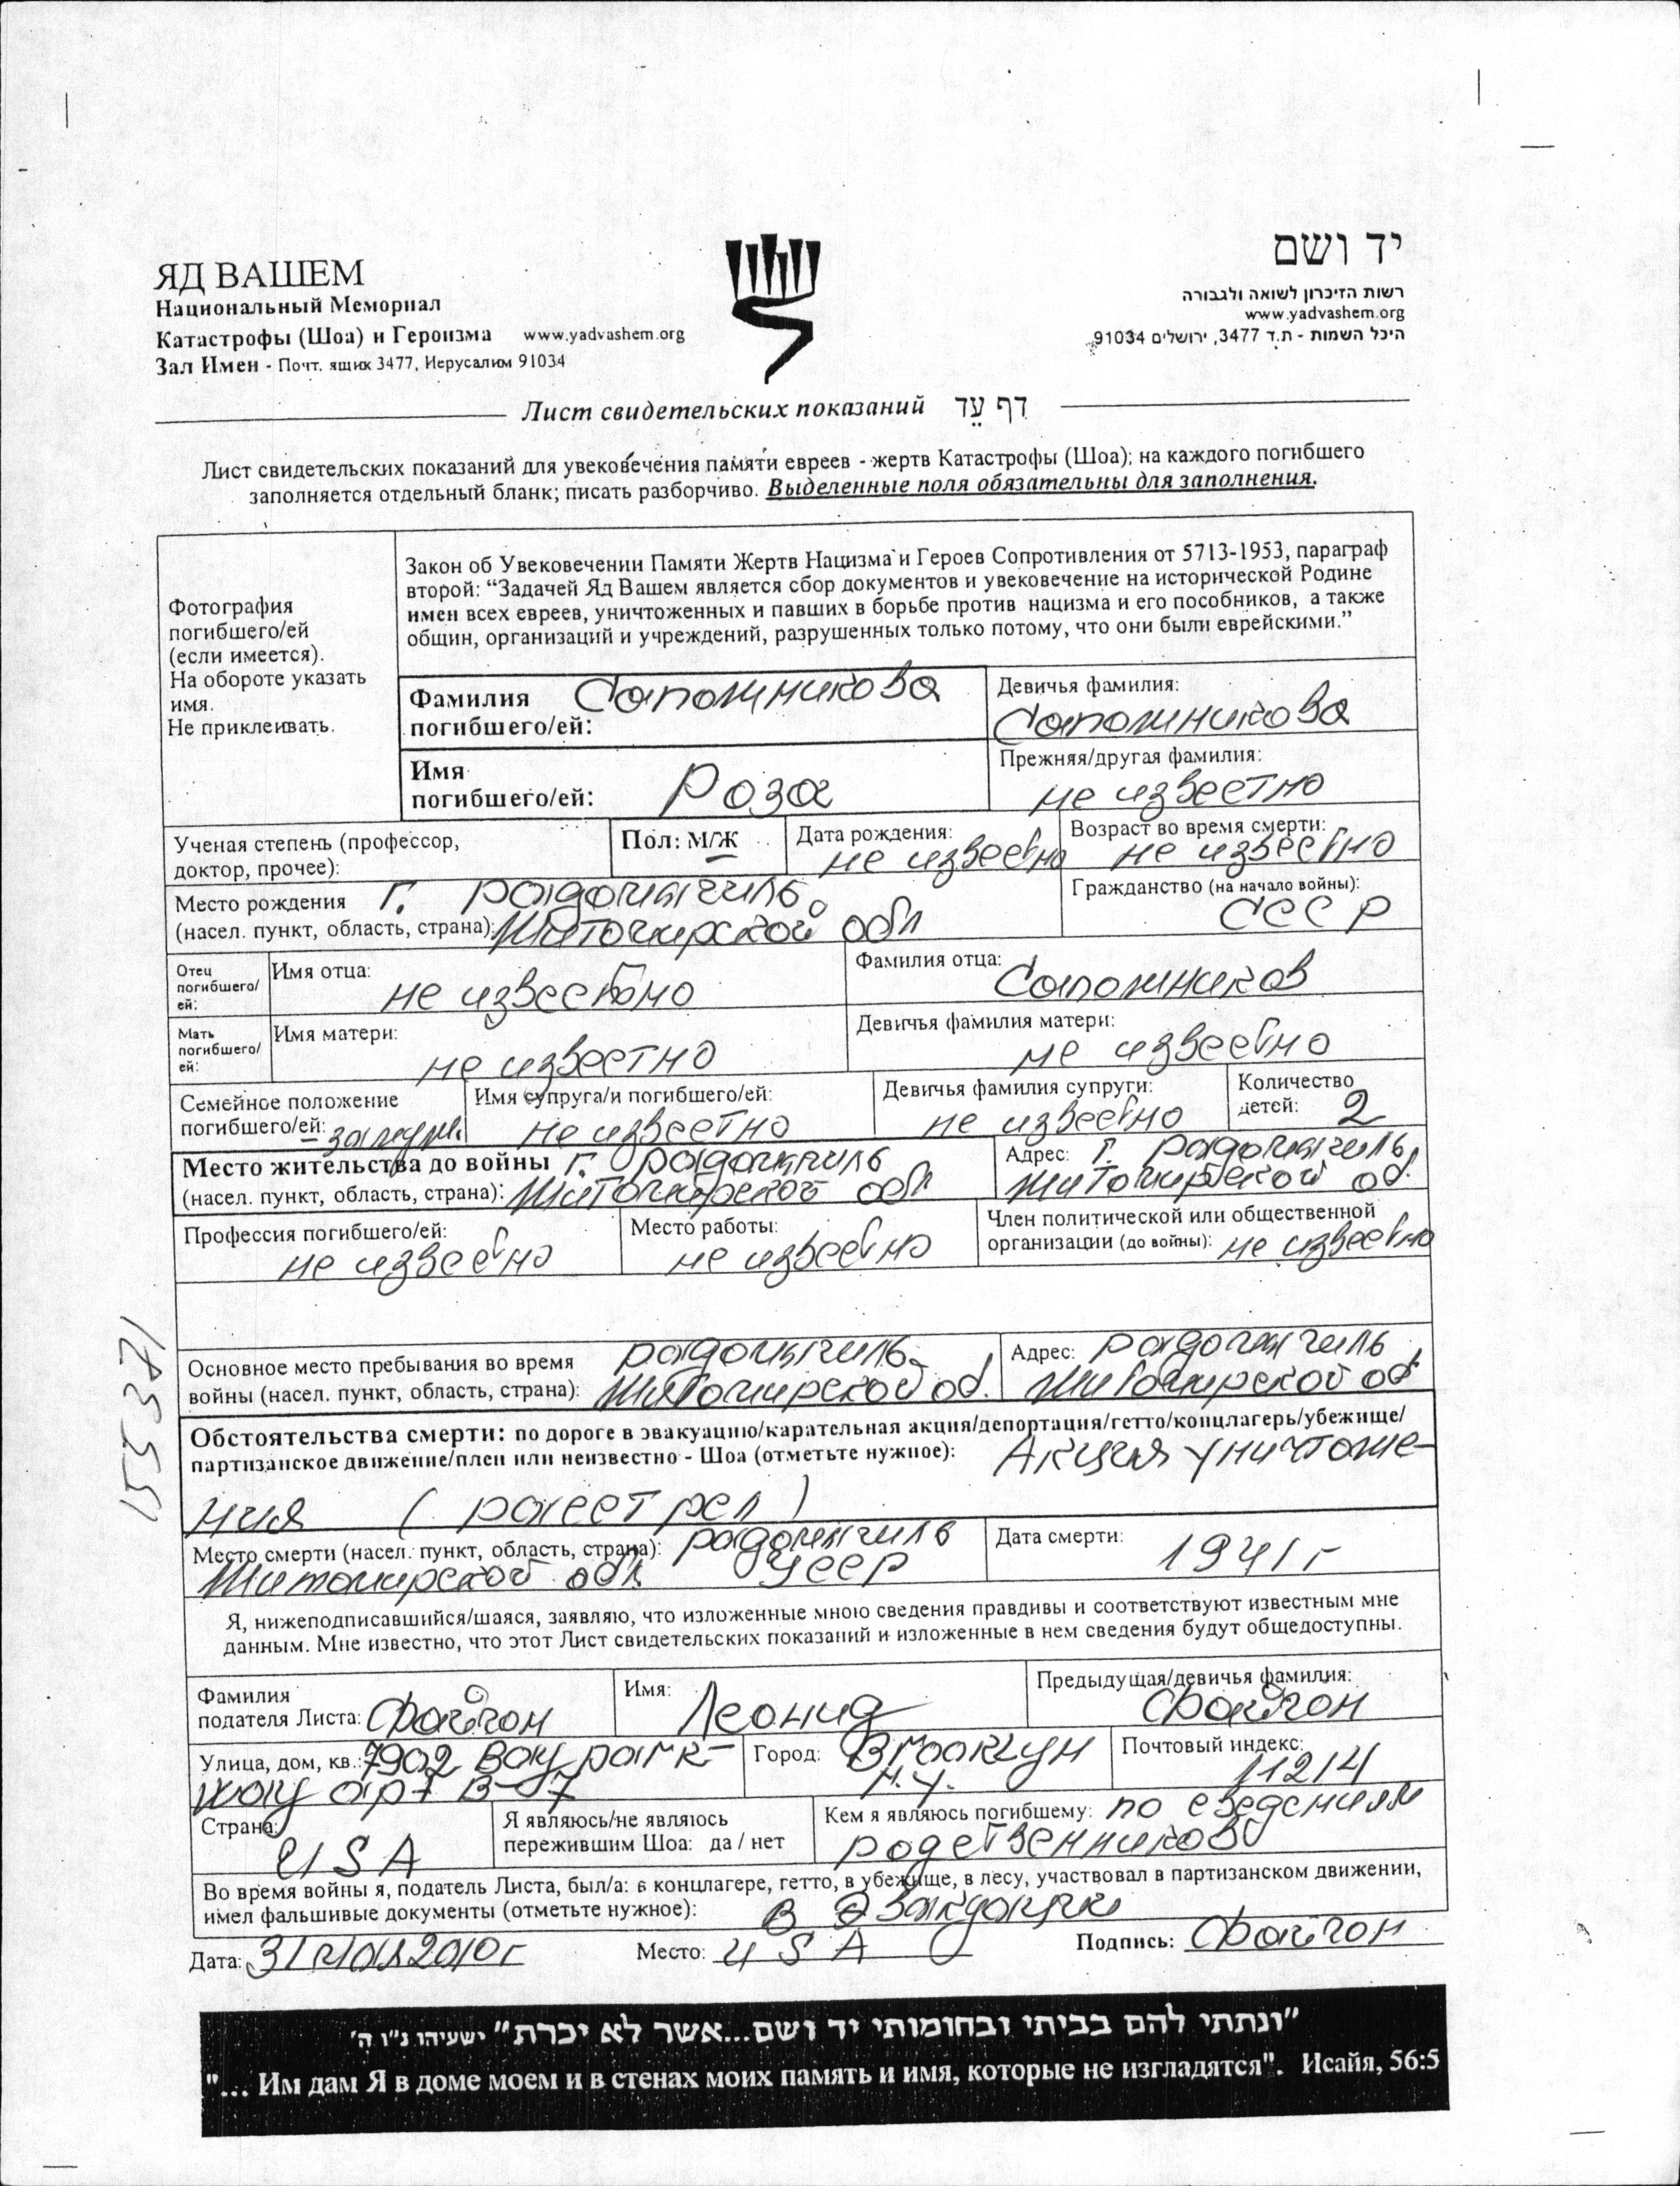 ЯД ВАШЕМ
Национальный Мемориал
Катастрофы (Шоа) и Героизма www.yadvashem.org
Зал Имен - Почт. ящик 3477, Иерусалим 91034
יד ושם
רשות הזיכרון לשואה ולגבורה
www.yadvashem.org
היכל השמות - ת.ד 3477, ירושלים 91034
Лист свидетельских показаний דף עֵד
Лист свидетельских показаний для увековечения памяти евреев - жертв Катастрофы (Шоа); на каждого погибшего
заполняется отдельный бланк; писать разборчиво. Выделенные поля обязательны для заполнения.
Фотография
погибшего/ей
(если имеется).
На обороте указать
имя.
Не приклеивать.
Закон об Увековечении Памяти Жертв Нацизма и Героев Сопротивления от 5713-1953, параграф
второй: “Задачей Яд Вашем является сбор документов и увековечение на исторической Родине
имен всех евреев, уничтоженных и павших в борьбе против нацизма и его пособников, а также
общин, организаций и учреждений, разрушенных только потому, что они были еврейскими.”
Фамилия погибшего/ей: Сапожникова
Девичья фамилия: Сапожникова
Имя погибшего/ей: Роза
Прежняя/другая фамилия: не известно
Ученая степень (профессор,
доктор, прочее):
Пол: М/Ж
Дата рождения: не известно
Возраст во время смерти: не известно
Место рождения г. радомышль
(насел. пункт, область, страна): Житомирской обл
Гражданство (на начало войны): СССР
Отец погибшего/ей:
Имя отца: не известно
Фамилия отца: Сапожников
Мать погибшего/ей:
Имя матери: не известно
Девичья фамилия матери: не известно
Семейное положение
погибшего/ей: - замуж.
Имя супруга/и погибшего/ей: не известно
Девичья фамилия супруги: не известно
Количество детей: 2
Место жительства до войны г. радомышль
(насел. пункт, область, страна): Житомирской обл
Адрес: г. радомышль
Житомирской об.
Профессия погибшего/ей: не известно
Место работы: не известно
Член политической или общественной
организации (до войны): не известно
155381
Основное место пребывания во время радомышль
войны (насел. пункт, область, страна): Житомирской об.
Адрес: радомышль
Житомирской об
Обстоятельства смерти: по дороге в эвакуацию/карательная акция/депортация/гетто/концлагерь/убежище/
партизанское движение/плен или неизвестно - Шоа (отметьте нужное): Акция уничтоже-
ния (расстрел)
Место смерти (насел. пункт, область, страна): радомышль
Житомирской обл. УССР
Дата смерти: 1941 г
Я, нижеподписавшийся/шаяся, заявляю, что изложенные мною сведения правдивы и соответствуют известным мне
данным. Мне известно, что этот Лист свидетельских показаний и изложенные в нем сведения будут общедоступны.
Фамилия
подателя Листа: Файгон
Имя: Леонид
Предыдущая/девичья фамилия: Файгон
Улица, дом, кв.: 7902 Bay park-
way apt B-7
Город: Brooklyn
N.Y.
Почтовый индекс: 11214
Страна: USA
Я являюсь/не являюсь
пережившим Шоа: да / нет
Кем я являюсь погибшему: по сведениям
родственников
Во время войны я, податель Листа, был/а: в концлагере, гетто, в убежище, в лесу, участвовал в партизанском движении,
имел фальшивые документы (отметьте нужное): В Эвакуации
Дата: 31 мая 2010 г Место: USA Подпись: Файгон
"ונתתי להם בביתי ובחומותי יד ושם...אשר לא יכרת" ישעיהו נ"ו ה'
"... Им дам Я в доме моем и в стенах моих память и имя, которые не изгладятся". Исайя, 56:5